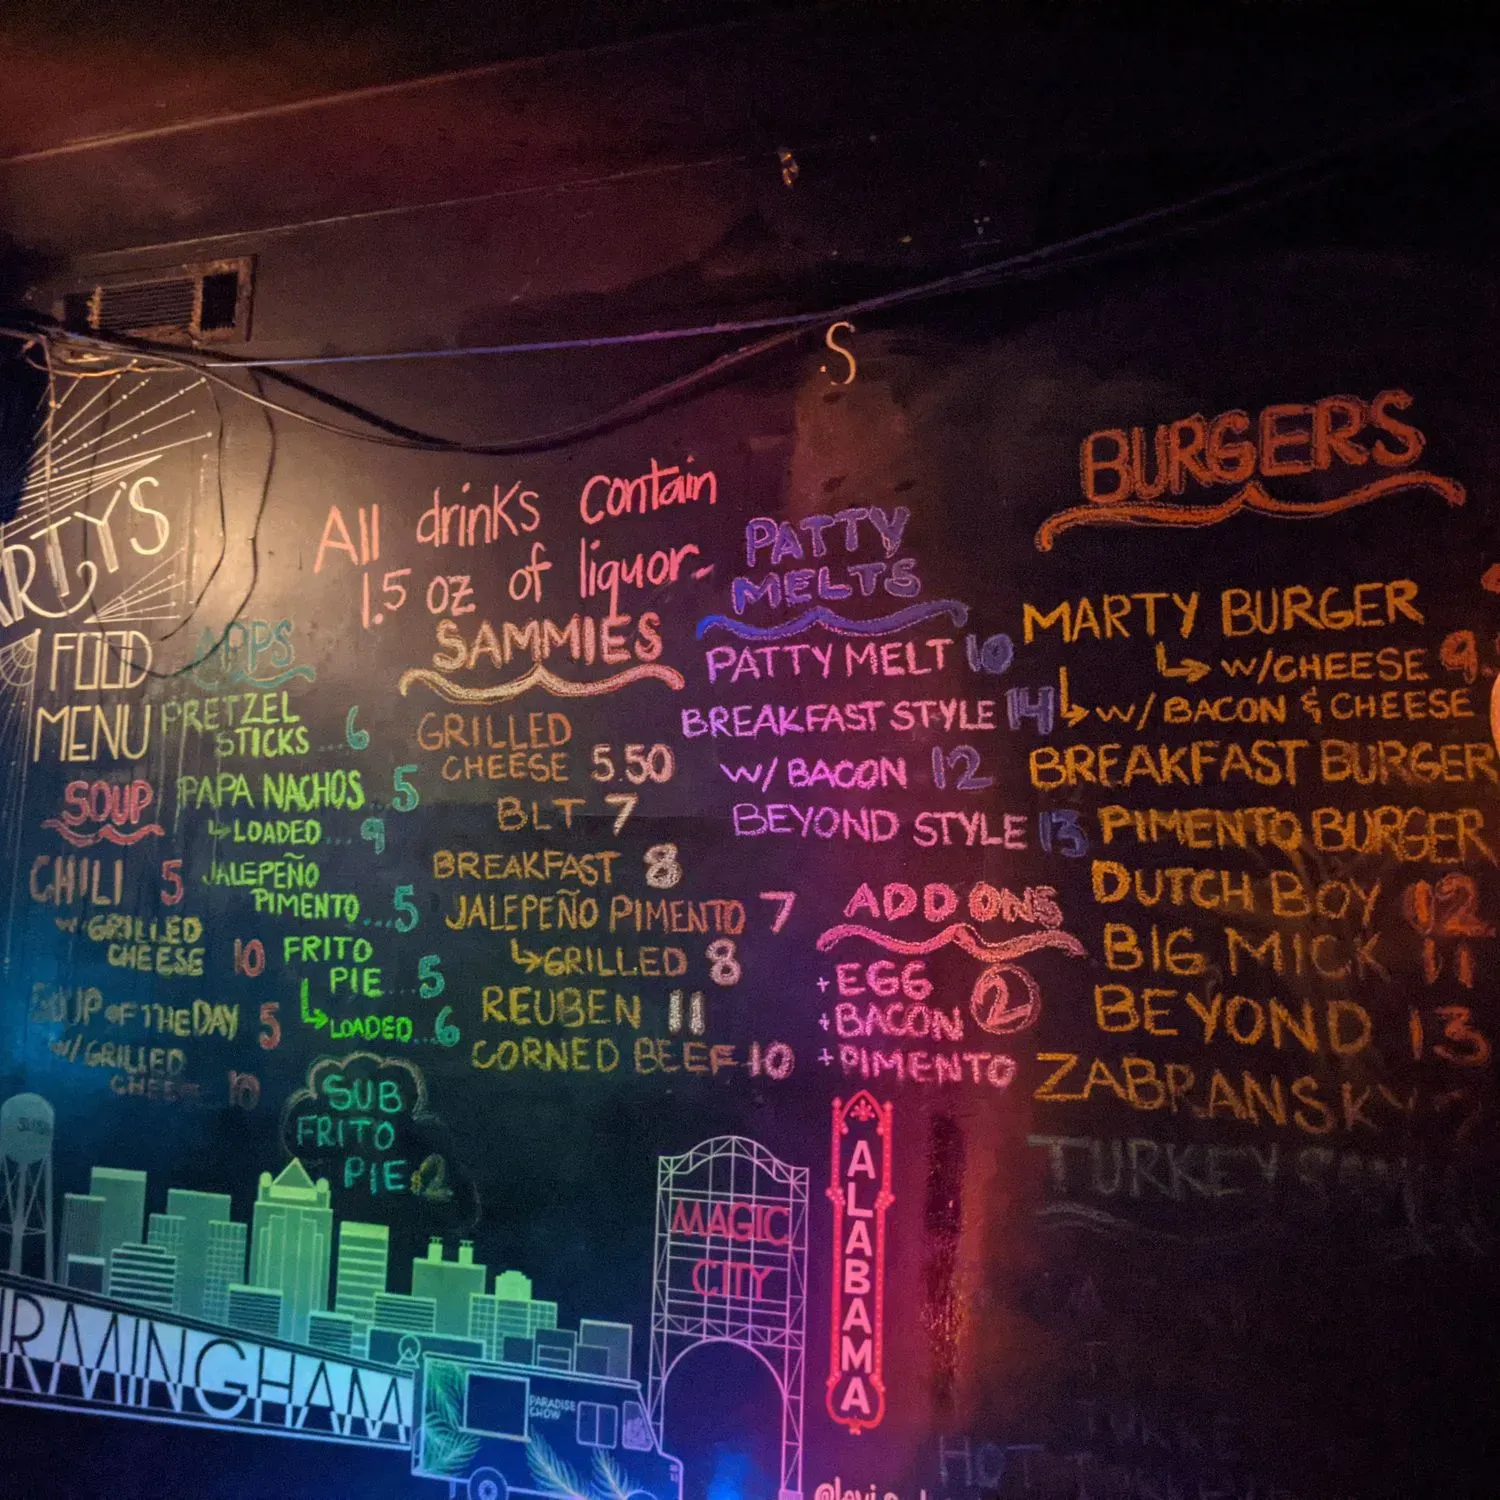 ARTY'S
FOOD
MENU
SOUP
CHILI 5
W/ GRILLED
CHEESE 10
SOUP OF THE DAY 5
W/ GRILLED
CHEESE 10
APPS
PRETZEL
STICKS...6
PAPA NACHOS 5
LOADED...9
JALEPEÑO
PIMENTO...5
FRITO
PIE...5
LOADED..6
SUB
FRITO
PIE $2
All drinks contain
1.5 oz of liquor.
SAMMIES
GRILLED
CHEESE 5.50
BLT 7
BREAKFAST 8
JALEPEÑO PIMENTO 7
GRILLED 8
REUBEN 11
CORNED BEEF 10
.S
PATTY
MELTS
PATTY MELT 10
BREAKFAST STYLE 14
W/ BACON 12
BEYOND STYLE 13
ADD ONS
+EGG
+BACON 2
+PIMENTO
BURGERS
MARTY BURGER
W/CHEESE 9
W/ BACON & CHEESE
BREAKFAST BURGER
PIMENTO BURGER
DUTCH BOY 12
BIG MICK 11
BEYOND 13
ZABRANSKY
TURKEY
MAGIC
CITY
ALABAMA
RMINGHAM
PARADISE
CHOW
HOT